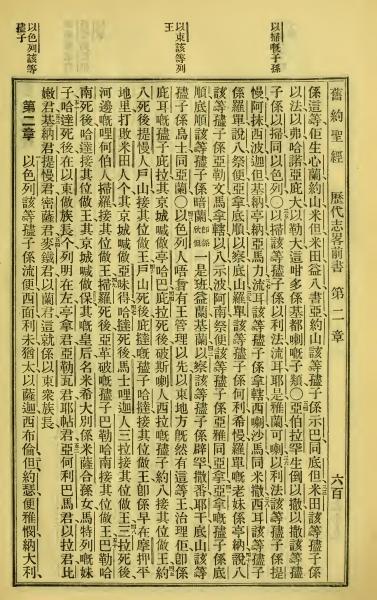 舊約聖經　歷代志畧前書　第二章　六百
以掃嘅子孫
以東該等列王
以色列該等孻子
係這等佢生心蘭約山米但米田益八書亞約山該等孻子係示巴同底但米田該等孻子
以法以弗哈諾亞庇大以勒大這咁多係基都喇嘅子類〇亞伯拉罕生倒以撒以撒該等孻
子係以掃同以色列〇以掃該等孻子係以利法流耳耶是雅蘭可喇以利法該等孻子係提
慢阿抹西波迦但基納亭納亞馬力流耳該等孻子係拿轄西喇沙馬同米撒西耳該等孻子
係羅單說八祭便亞拿底順以察底山羅單該等孻子係何利希慢羅單嘅老妹係亭納說八
該等孻子係亞勒文馬拿轄以八示波阿南祭便該等孻子係亞雅同亞拿亞拿嘅孻子係底
順底順該等孻子係暗蘭一是班益蘭基蘭以察該等孻子係辟罕撒番耶干底山該等
孻子係烏士同亞蘭〇以色列人唔曾有王管理以先以東地方旣然有這等王治理佢卽係
庇耳嘅孻子庇拉其京城喊做亭哈巴庇拉死後破斯喇人西拉嘅孻子約八接其位做王約
八死後提慢人戶山接其位做王戶山死後庇撻嘅孻子哈撻接其位做王卽係早在摩押平
地里打敗米田人个其京城喊做亞味得哈撻死後馬士哩迦人三拉接其位做王三拉死後
河邊嘅哩何伯人掃羅接其位做王掃羅死後亞革破嘅孻子巴勒哈南接其位做王巴勒哈
南死後哈達接其位做王其京城喊做保其嘅皇后名米希大別係米薩合孫女馬特列嘅妹
子哈達死後在以東做族長个列明在左亭拿君亞勒瓦君耶帖君亞何利巴馬君以拉君比
嫩君基納君提慢君密薩君麥鐵君以蘭君這就係以東衆族長
第二章　以色列該等孻子係流便西面利未猶太以薩迦西布倫但約瑟便雅憫納大利